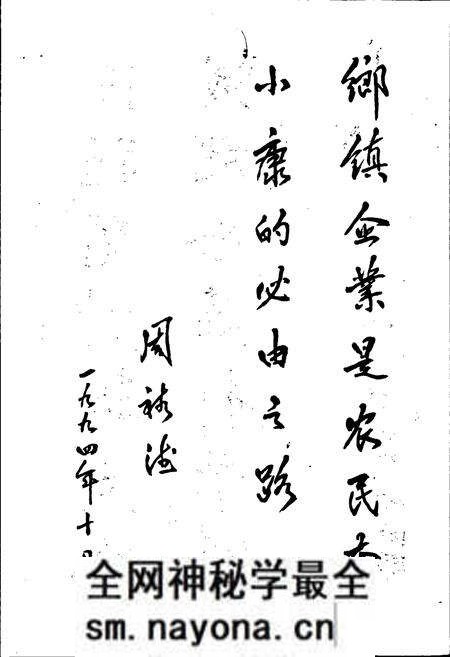 鄉鎮企業是农民
小康的必由之路
周
一九九四年十
全网神秘学最全
sm.nayona.cn